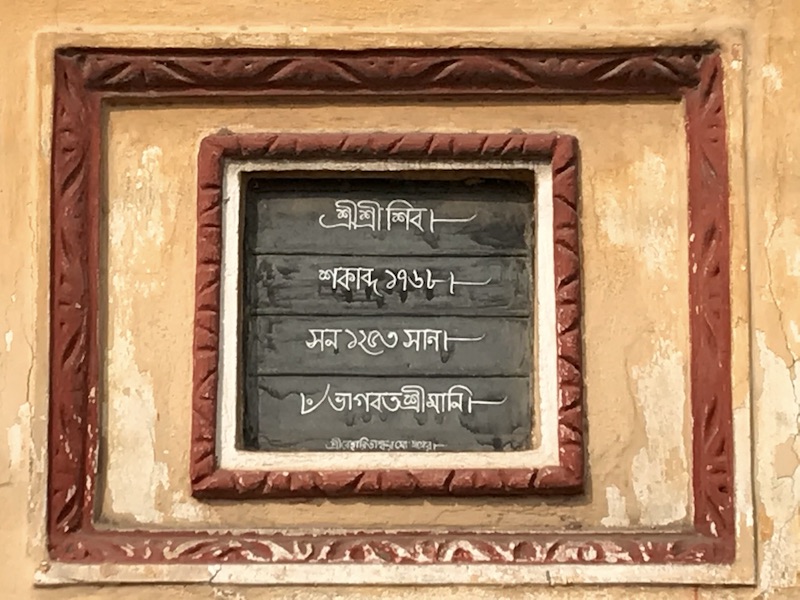 শ্রীশ্রী শিব।
শকাব্দ ১৭৬৮।
সন ১২৫৩ সান।
৺ ভাগবতশ্রীমানি।